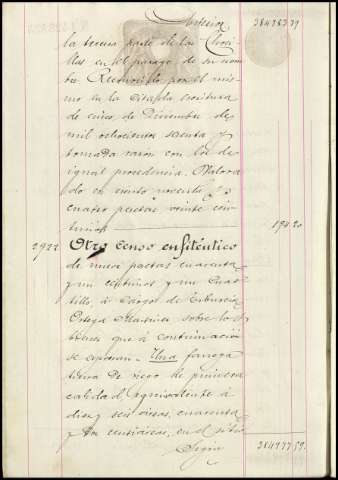 Anterior 38478339
la tercera parte de las
en el parage de su nom
bre. Reconocido por el mis
mo en la citada escritura
de cinco de Diciembre de
mil ochocientos sesenta y
tomada razon con los de
igual procedencia. Valora
do en ciento noventa y
cuatro pesetas veinte cen
timos 194 20
2922 Otro censo enfitéutico
de nueve pesetas cuarenta
y un centimos y un cuar
tillo, á cargo de Tiburcio
Ortega Martinez sobre los
bienes que á continuación
se espresan. Una fanega
tierra de riego de primera
calidad, equivalente á
diez y seis areas, cuarenta
y centiareas, en el sitio
Sigue 38497759